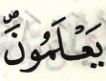 يَعْلَمُونَۙ